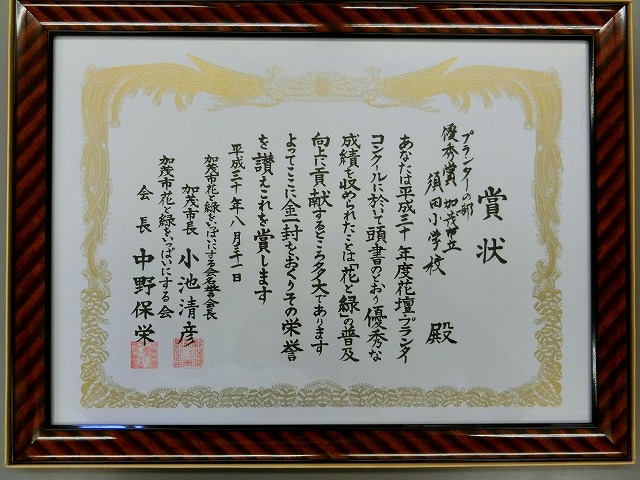 賞状
プランターの部
優秀賞 加茂市立
須田小学校 殿
あなたは平成三十年度花壇・プランター
コンクールに於いて頭書のとおり優秀な
成績を収められたことは「花と緑」の普及
向上に貢献するところ多大であります
よってここに金一封をおくりその栄誉
を讃えこれを賞します
平成三十年八月三十一日
加茂市花と緑をいっぱいにする会名誉会長
加茂市長 小池清彦
加茂市花と緑をいっぱいにする会
会長 中野保栄